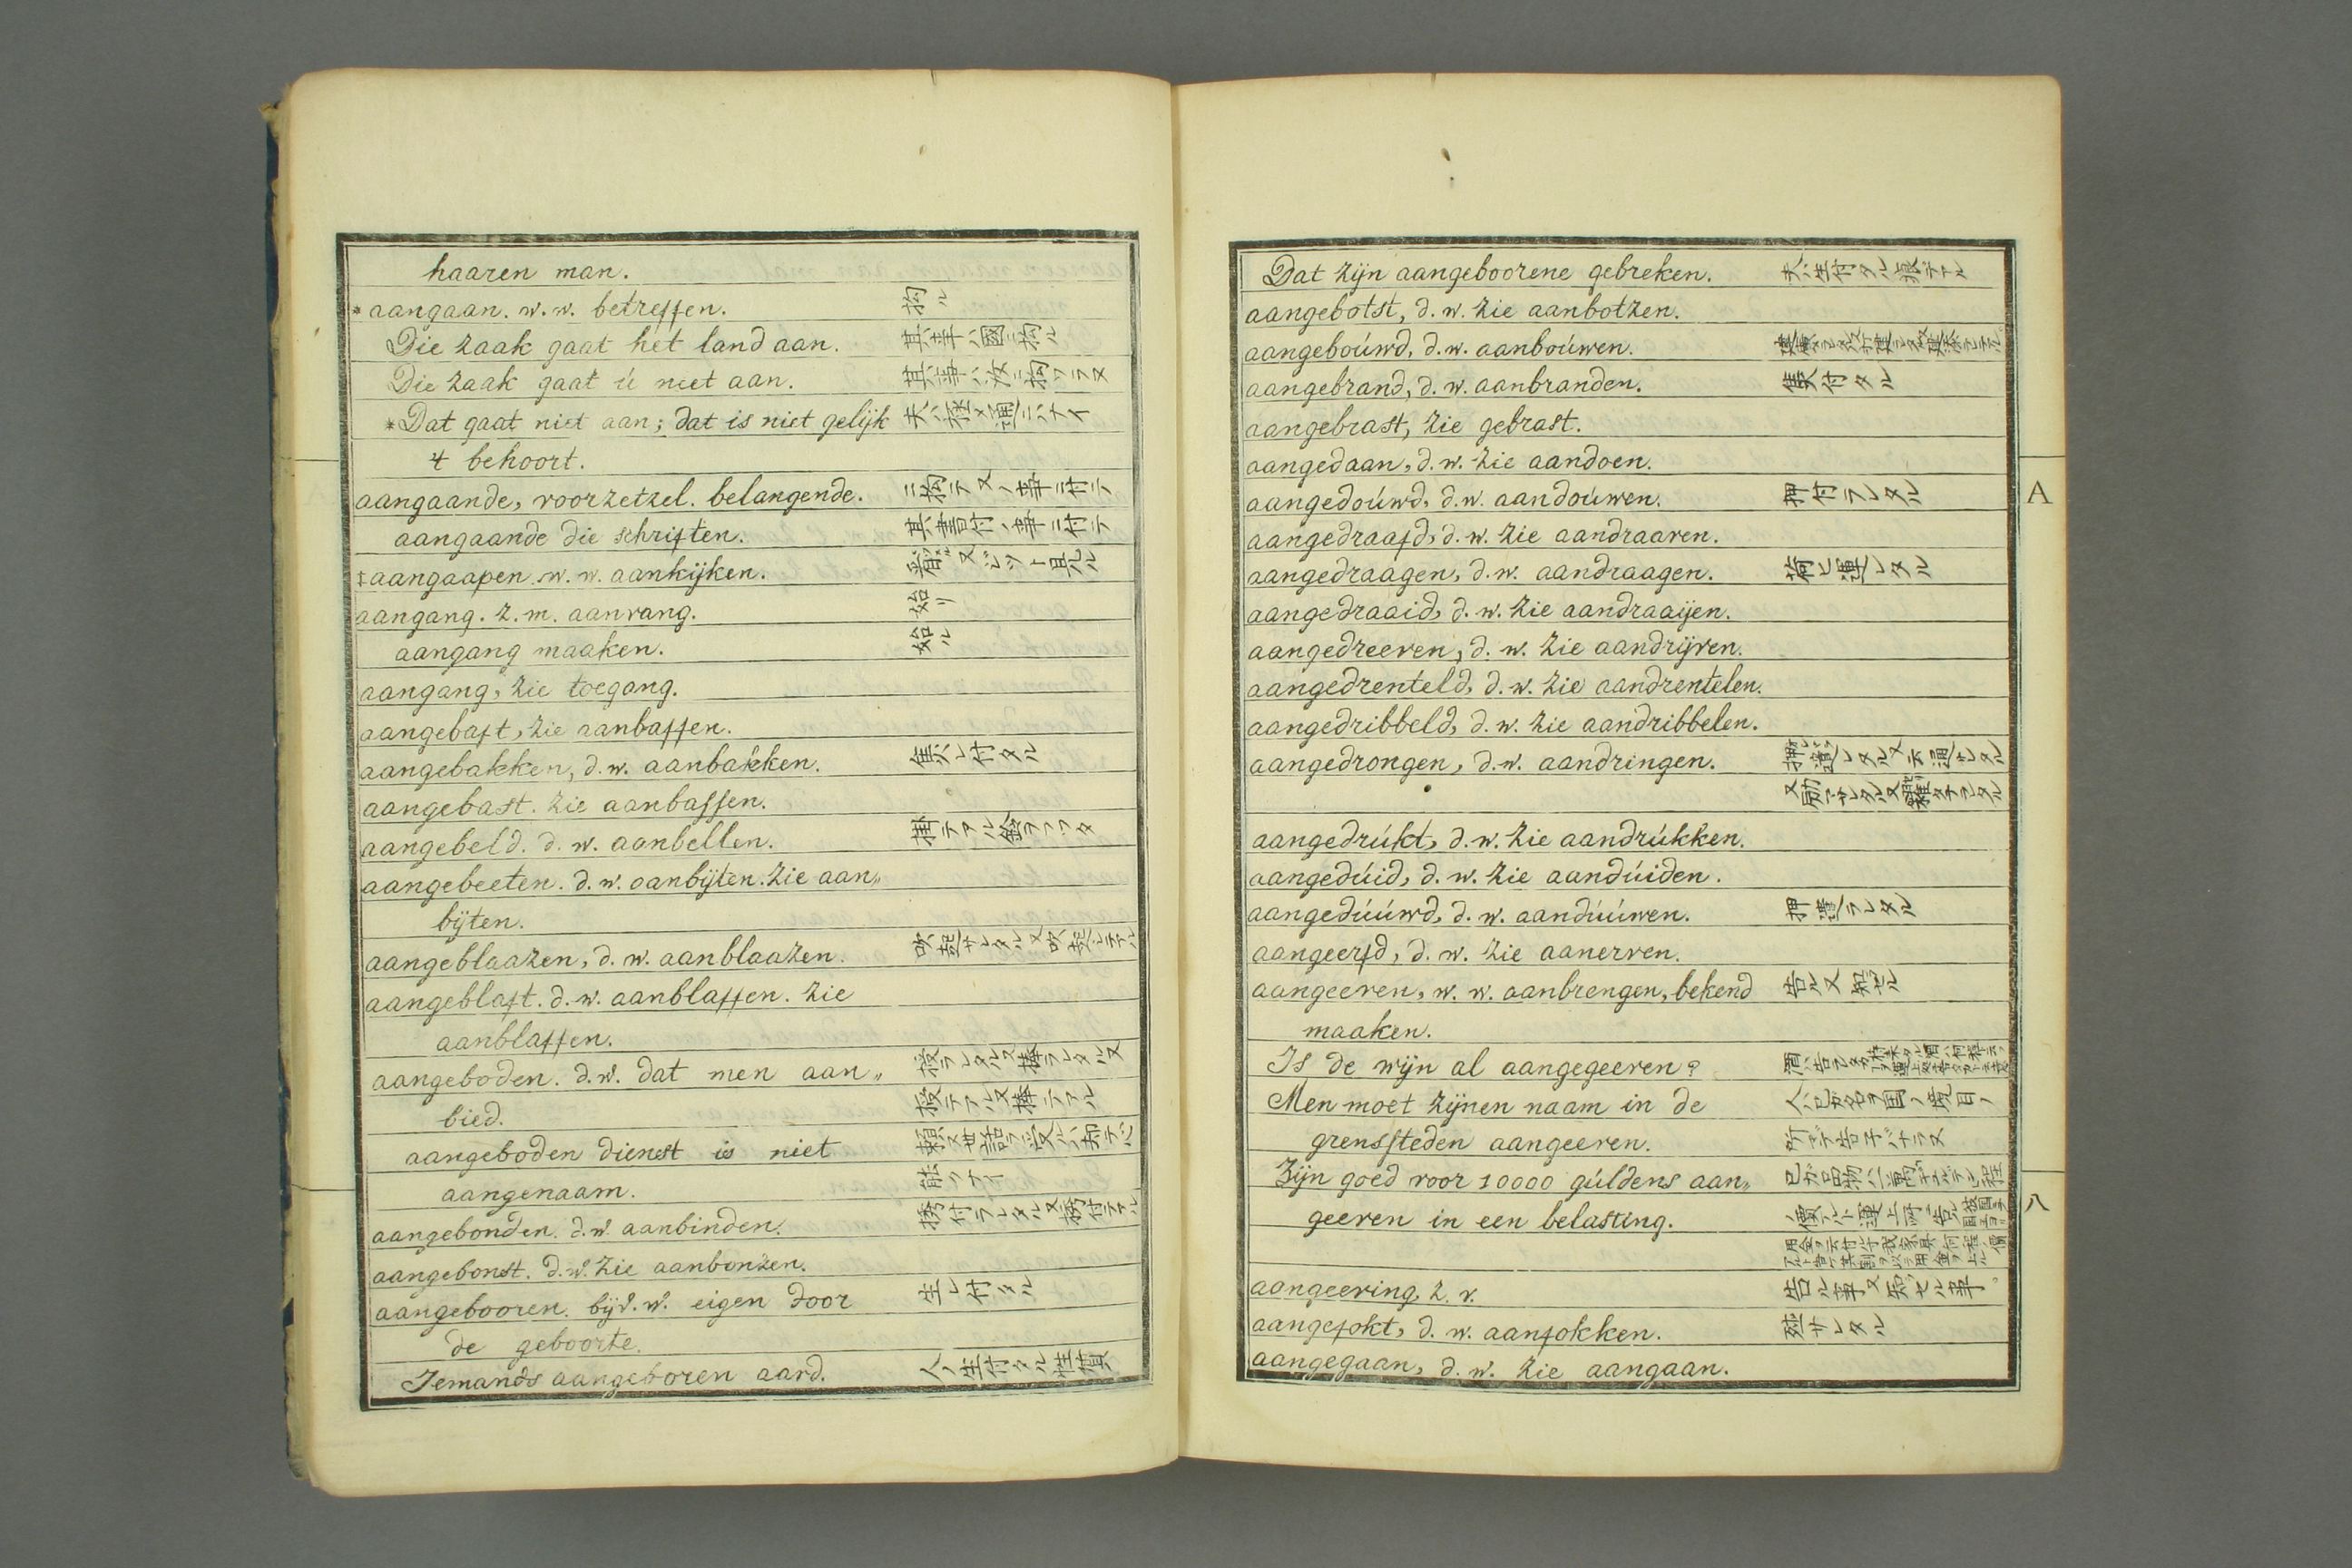 haaren man.
*aangaan. w.w. betreffen. 拘ル
Die zaak gaat het land aan. 其事ハ國ニ拘ル
Die zaak gaat ú niet aan. 其事ハ汝ニ拘ワラヌ
*Dat gaat niet aan; dat is niet gelijk 夫ハ
't behoort.
aangaande, voorzetzel. belangende. ニ拘テ又ノ事ニ付テ
aangaande die schriften. 其書付ノ事ニ付テ
‡aangaapen. w.w. aankijken.
aangang. z.m. aanvang. 始リ
aangang maaken. 始ル
aangang, zie toegang.
aangebaft, zie aanbaffen.
aangebakken, d.w. aanbakken. 焦レ付タル
aangebast. zie aanbassen.
aangebeld. d.w. aanbellen. 掛テアル鈴ヲフツタ
aangebeeten. d.w. aanbijten. zie aan„
bijten.
aangeblaazen, d.w. aanblaazen. 吹起サレタル又吹起シテアル
aangeblaft. d.w. aanblaffen. zie
aanblaffen.
aangeboden. d.w. dat men aan„ 授ラレタル又捧ラレタル又
bied. 授テアル又捧テアル
aangeboden dienst is niet
aangenaam.
aangebonden. d.w. aanbinden.
aangebonst. d.w. zie aanbonzen.
aangebooren. bijv.w. eigen door 生レ付タル
de geboorte.
Jemands aangeboren aard. 人ノ生付タル性質
Dat zijn aangeboorene gebreken. 夫ハ生付タル
aangebotst, d.w. zie aanbotzen.
aangeboúwd, d.w. aanboúwen.
aangebrand, d.w. aanbranden. 焦付タル
aangebrast, zie gebrast.
aangedaan, d.w. zie aandoen.
aangedoúwd, d.w. aandoúwen. 押付ラレタル
aangedraafd, d.w. zie aandraaven.
aangedraagen, d.w. aandraagen. 荷ヒ運レタル
aangedraaid, d.w. zie aandraaijen.
aangedreeven, d.w. zie aandrijven.
aangedrenteld, d.w. zie aandrentelen.
aangedribbeld, d.w. zie aandribbelen.
aangedrongen, d.w. aandringen.
aangedrúkt, d.w. zie aandrúkken.
aangedúid, d.w. zie aandúiden.
aangedúúwd, d.w. aandúúwen. 押遣ラレタル
aangeerfd, d.w. zie aanerven.
aangeeven, w.w. aanbrengen, bekend 告ル又知セル
maaken.
Is de wijn al aangegeeven?
Men moet zijnen naam in de 人ハ己ガ名ヲ国ノ境目ノ
grenssteden aangeeven. 所ニテ告子バナラヌ
Zijn goed voor 10000 gúldens aan„
geeven in een belasting.
aangeeving, z.v. 告ル事又知ラセル事。
aangefokt, d.w. aanfokken.
aangegaan, d.w. zie aangaan.
A
八